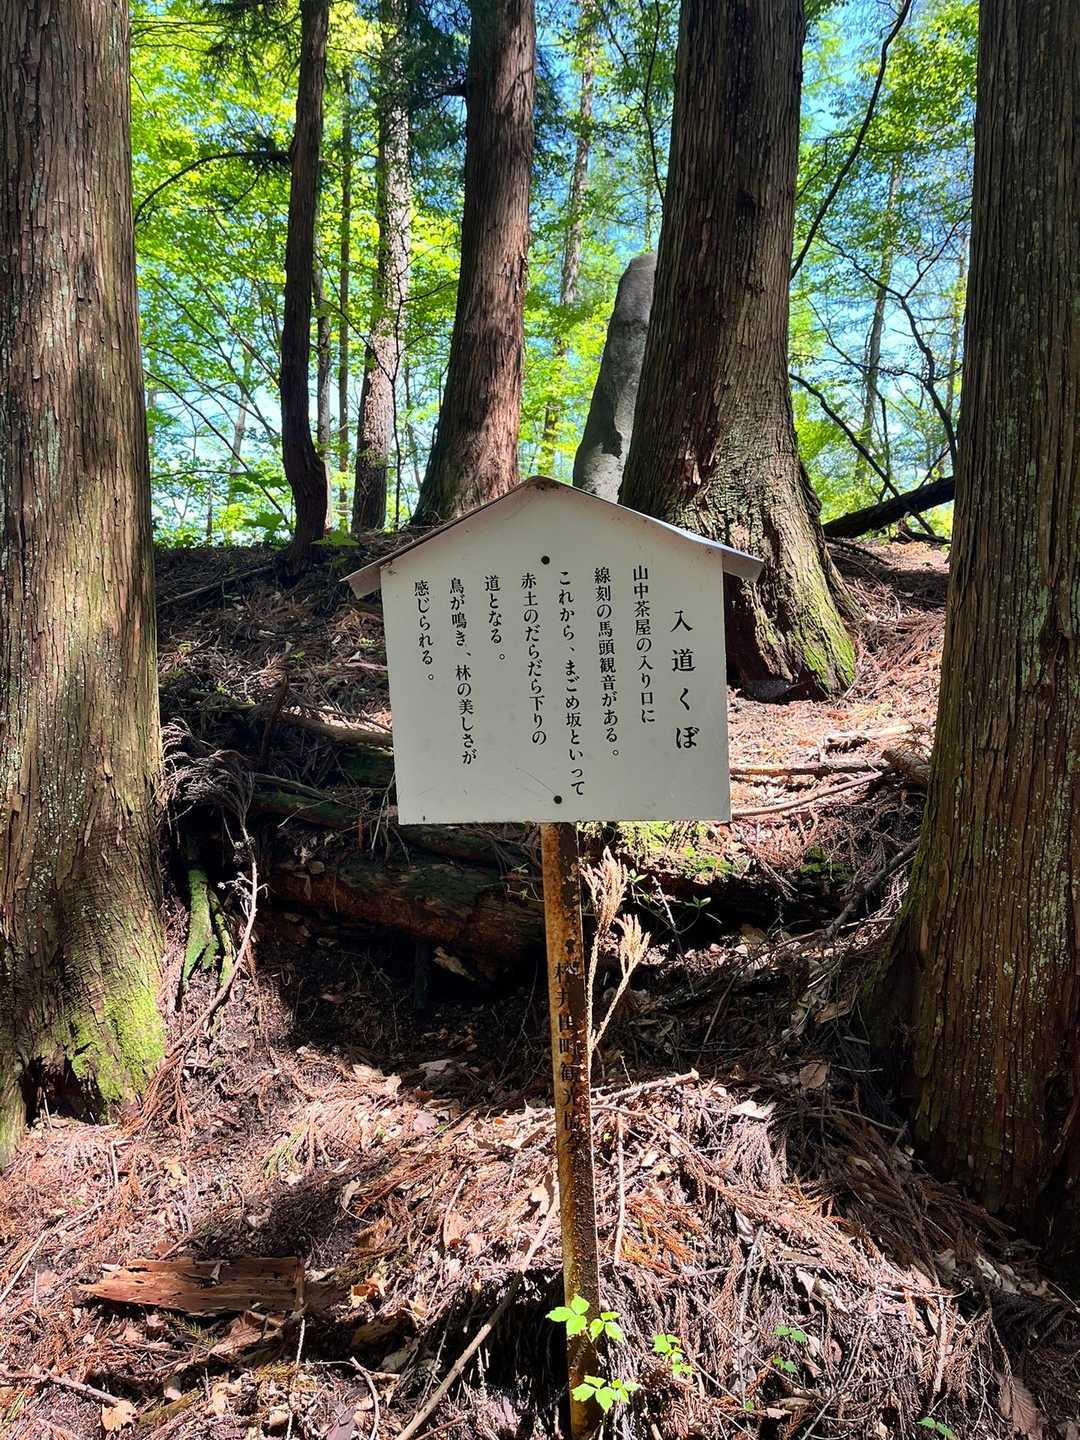 入道くぼ
山中茶屋の入り口に
線刻の馬頭観音がある。
これから、まごめ坂といって
赤土のだらだら下りの
道となる。
鳥が鳴き、林の美しさが
感じられる。
軽井沢町観光協会